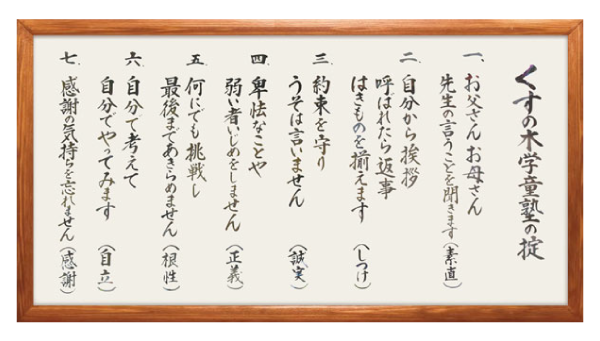 くすの木学童塾の掟
一、お父さんお母さん
先生の言うことを聞きます(素直)
二、自分から挨拶
呼ばれたら返事
はきものを揃えます(しつけ)
三、約束を守り
うそは言いません(誠実)
四、卑怯なことや
弱い者いじめをしません(正義)
五、何にでも挑戦し
最後まであきらめません(根性)
六、自分で考えて
自分でやってみます(自立)
七、感謝の気持ちを忘れません(感謝)